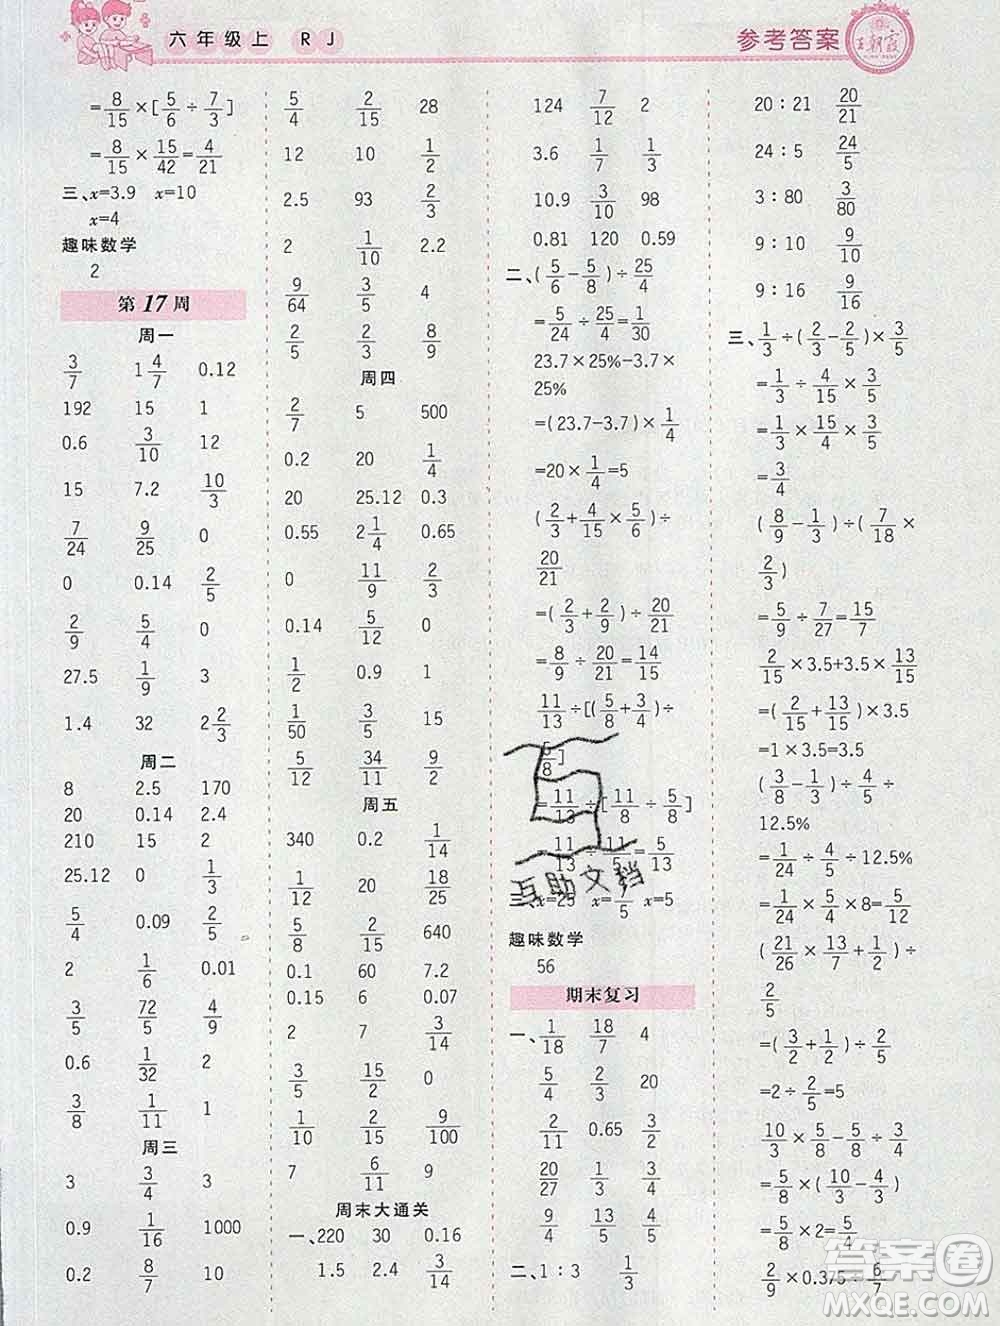 六年级上 RJ
参考答案
王朝霞
=8/15×[5/6÷7/3]
=8/15×15/42=4/21
三、x=3.9 x=10
x=4
趣味数学
2
第17周
周一
3/7 1 4/7 0.12
192 15 1
0.6 3/10 12
15 7.2 10/3
7/24 9/25 0
0 0.14 2/5
2/9 5/4 0
27.5 1/9 3
1.4 32 2 2/3
周二
8 2.5 170
20 0.14 2.4
210 15 2
25.12 0 1/3
5/4 0.09 2/5
2 1/6 0.01
3/5 72/5 4/9
0.6 1/32 2
3/8 1/11 1
周三
3 3/4 3
0.9 1/16 1000
0.2 8/7 10
5/4 2/15 28
12 10 1/2
2.5 93 2/3
2 1/10 2.2
9/64 3/5 4
2/5 3/2 8/9
周四
2/7 5 500
0.2 20 1/4
20 25.12 0.3
0.55 2 1/4 0.65
0 11/9 2/3
0.14 5/12 0
1/2 0.9 1
1/50 3/5 15
5/12 34/11 9/2
周五
340 0.2 1/14
1/12 20 18/25
5/8 2/15 640
0.1 60 7.2
0.15 6 0.07
2 7 3/4
3/5 15/2 0
1/12 4/5 9/100
7 6/11 9
周末大通关
一、220 30 0.16
1.5 2.4 3/14
124 7/12 2
3.6 1/7 1/3
10.9 3/10 98
0.81 120 0.59
二、(5/6-5/8)÷25/4
=5/24÷25/4=1/30
23.7×25%-3.7×
25%
=(23.7-3.7)×1/4
=20×1/4=5
(2/3+4/15×5/6)÷
20/21
=(2/3+2/9)÷20/21
=8/9÷20/21=14/15
11/13÷[(5/8+3/4)÷
5/8]
=11/13÷[11/8÷5/8]
=11/13÷11/5=5/13
三、x=25 x=1/5 x=5
趣味数学
56
期末复习
一、1/18 18/7 4
5/4 2/3 20
2/11 0.65 3/2
20/27 1/3 3/4
9/4 4/5 5/4
二、1:3 1/3
20:21 20/21
24:5 24/5
3:80 3/80
9:10 9/10
9:16 9/16
三、1/3÷(2/3-2/5)×3/5
=1/3÷4/15×3/5
=1/3×15/4×3/5
=3/4
(8/9-1/3)÷(7/18×
2/3)
=5/9÷7/27=15/7
2/15×3.5+3.5×13/15
=(2/15+13/15)×3.5
=1×3.5=3.5
(3/8-1/3)÷4/5÷
12.5%
=1/24÷4/5÷12.5%
=1/24×5/4×8=5/12
(21/26×13/7+1/2)÷
2/5
=(3/2+1/2)÷2/5
=2÷2/5=5
10/3×5/8-5/8÷3/4
=5/8×(10/3-4/3)
=5/8×2=5/4
2/9×0.375÷6/7
互助文档
答案圈
MXQE.COM